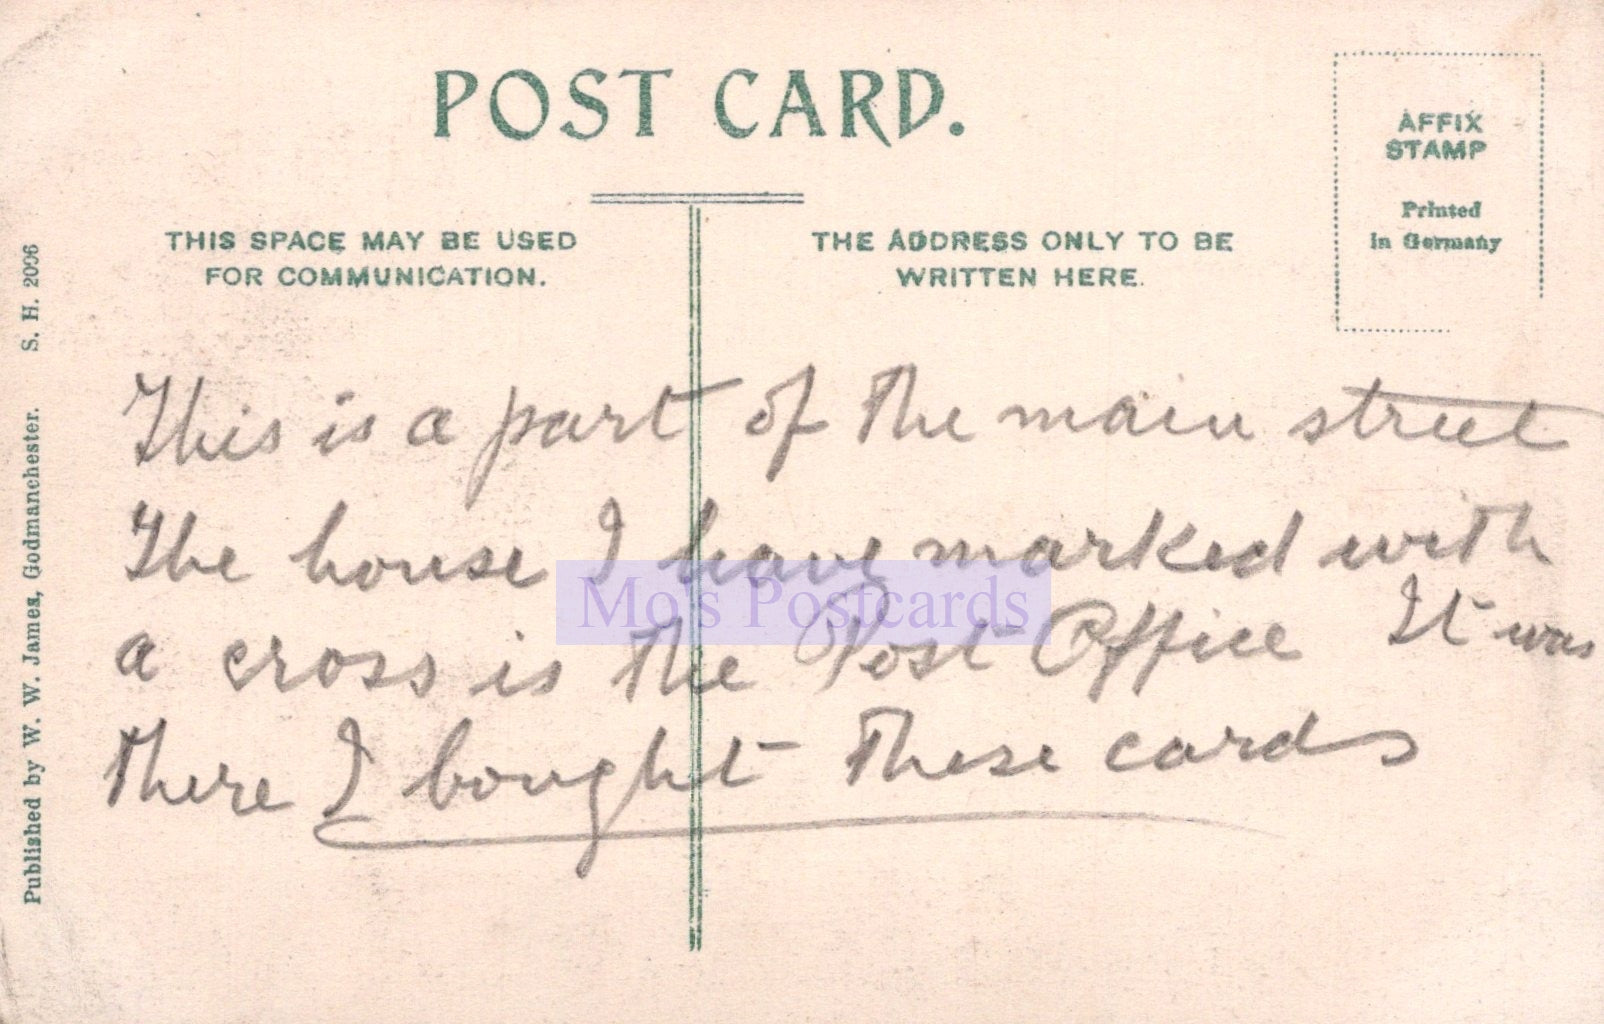 POST CARD.
AFFIX
STAMP
Printed
in Germany
THIS SPACE MAY BE USED
FOR COMMUNICATION.
THE ADDRESS ONLY TO BE
WRITTEN HERE.
This is a part of the main street
The house I have marked with
a cross is the Post Office It was
there I bought these cards
Mo's Postcards
Published by W. W. James, Godmanchester. S. H. 2006